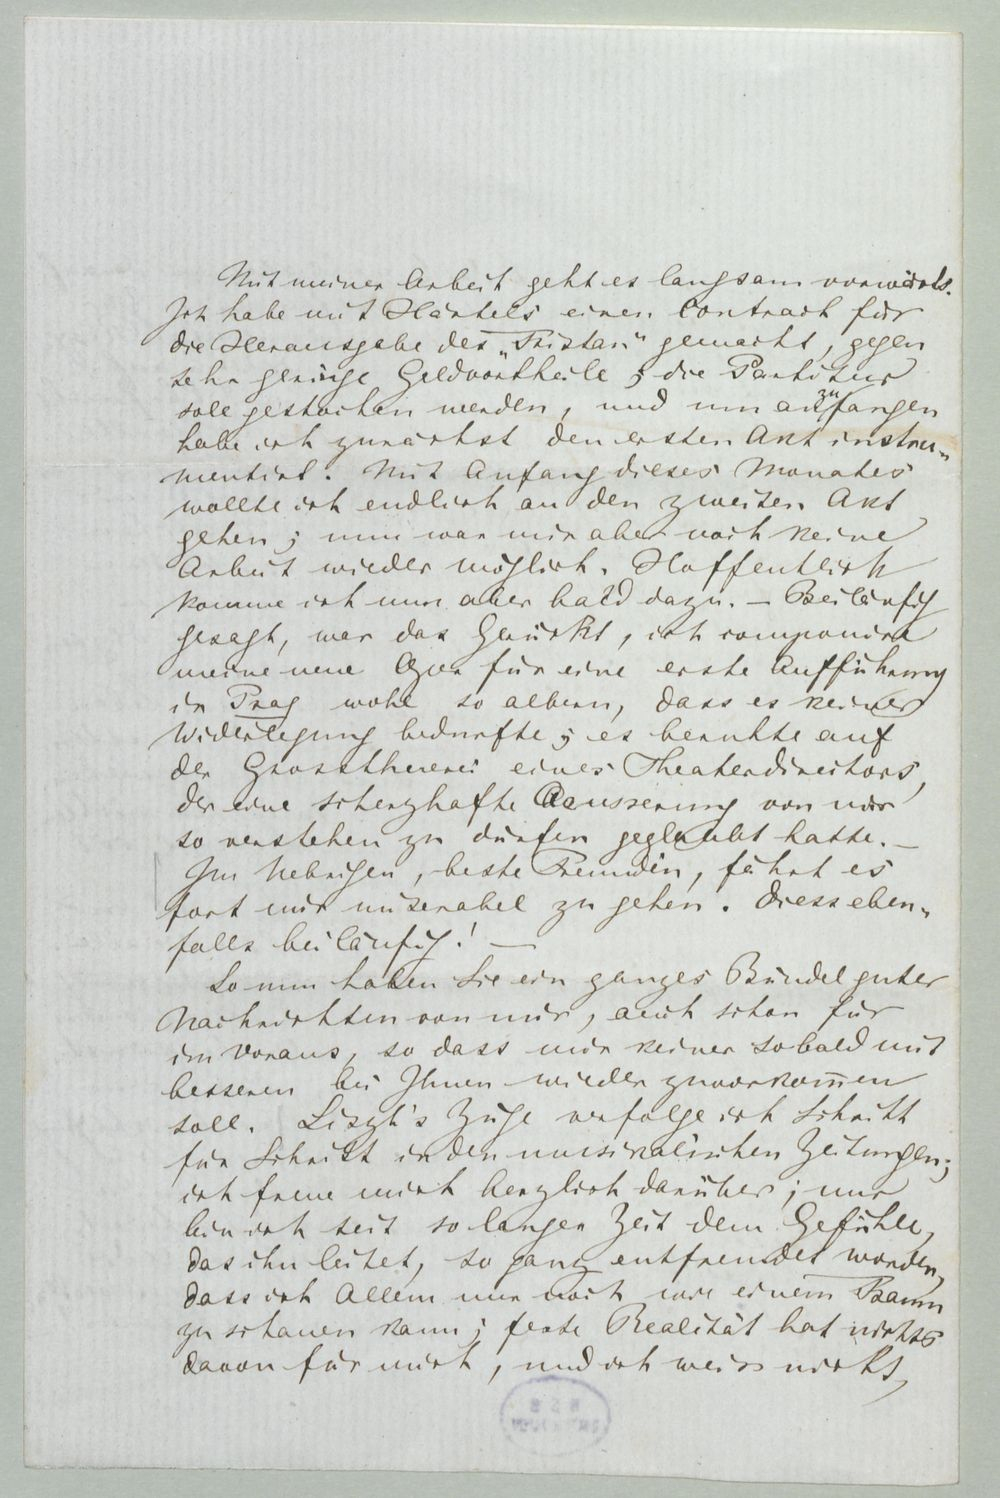 Mit meiner Arbeit geht es langsam vorwärts.
Ich habe mit Härtels einen Contract für
die Herausgabe des „Tristan" gemacht, gegen
sehr geringe Geldvortheile; die Partitur
soll gestochen werden, und um anzufangen
habe ich zunächst den ersten Akt instru-
mentirt. Mit Anfang dieses Monates
wollte ich endlich an den zweiten Akt
gehen; nun war mir aber noch keine
Arbeit wieder möglich. Hoffentlich
komme ich nun aber bald dazu. — Beiläufig
gesagt, war das Gerücht, ich componire
meine neue Oper für eine erste Aufführung
in Prag wohl so albern, dass es keiner
Widerlegung bedurfte; es beruhte auf
der Grossthuerei eines Theaterdirectors,
der eine scherzhafte Aeusserung von mir
so verstehen zu dürfen geglaubt hatte. —
Im Uebrigen, beste Freundin, fährt es
fort mir miserabel zu gehen. Diess eben-
falls beiläufig! —
So nun haben Sie ein ganzes Bündel guter
Nachrichten von mir, auch schon für
im Voraus, so dass mir keiner sobald mit
besseren bei Ihnen wieder zuvorkommen
soll. Liszt's Züge verfolge ich Schritt
für Schritt in den musikalischen Zeitungen;
ich freue mich herzlich darüber; nur
bin ich seit so langer Zeit dem Gefühle,
das ihn leitet, so ganz entfremdet worden,
dass ich Allem nur noch wie einem Traum
zu schauen kann; feste Realität hat nichts
davon für mich, und ich weiss nicht,